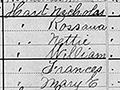 Hart Nicholas
" Rossana
" Nettie
" William
" Frances
" Mary C